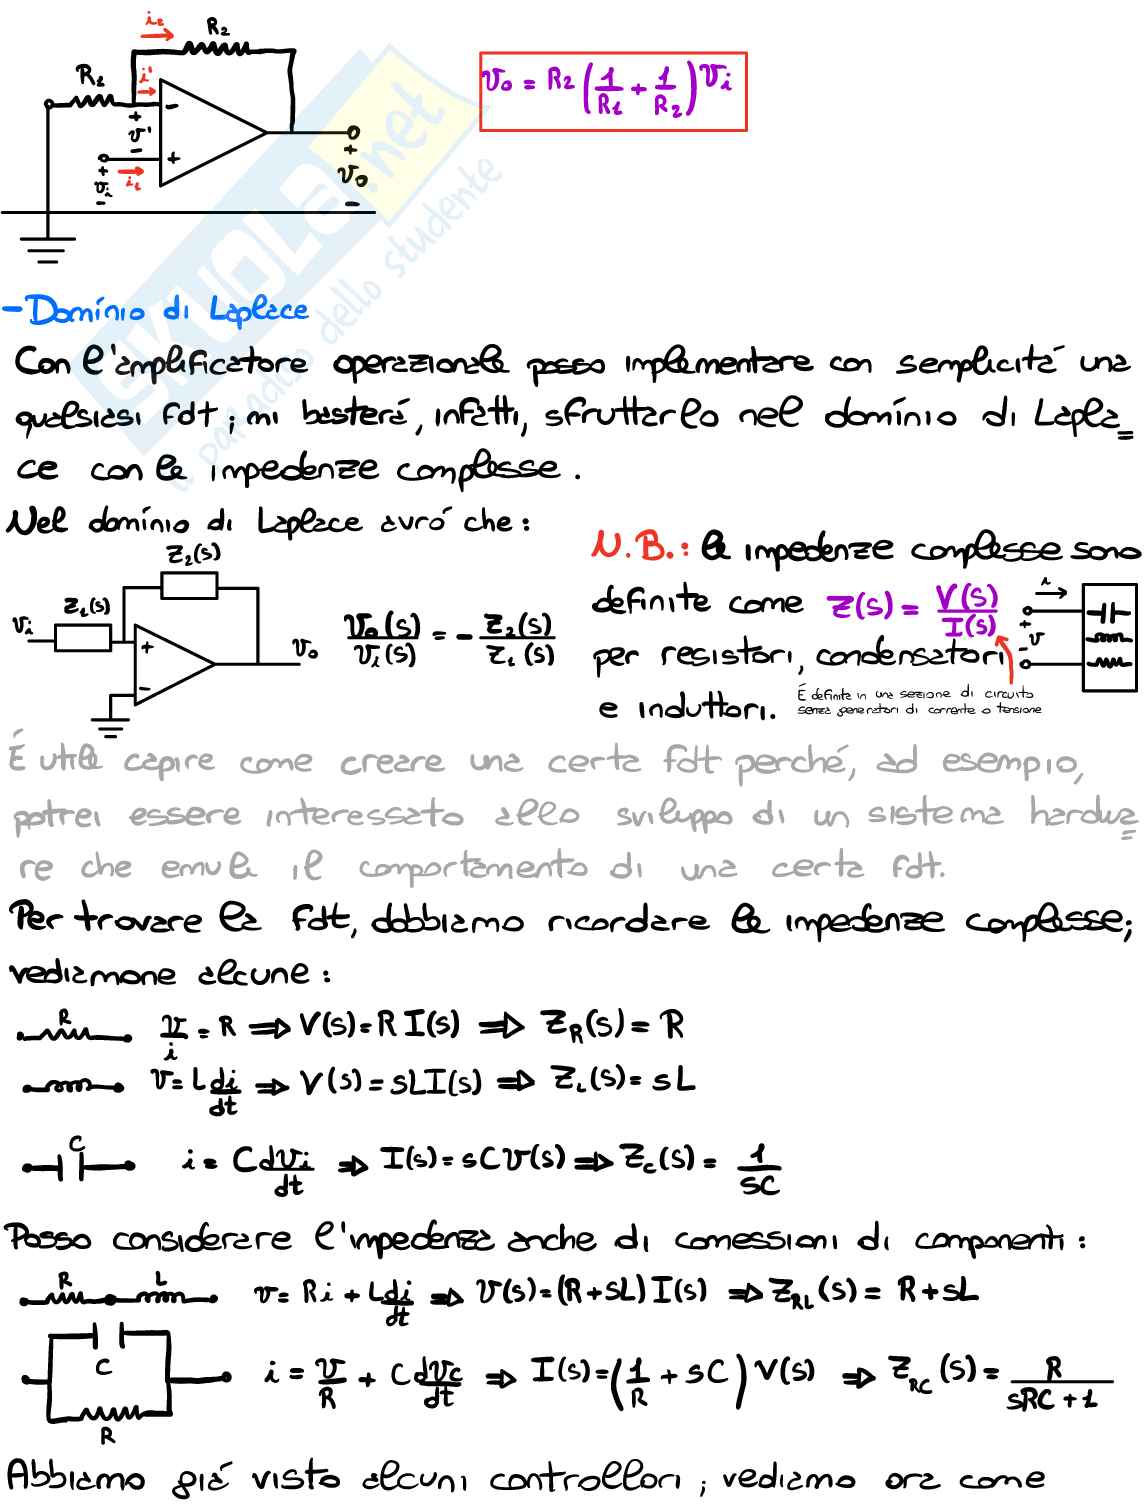 i₂ R₂
R₁ i'
+ v' -
v₀ = R₂ (1/R₁ + 1/R₂) vᵢ
- +
+ vᵢ - i₁
+ v₀ -
SKUOLA.net
il paradiso dello studente
- Domínio di Laplace
Con l'amplificatore operazionale posso implementare con semplicitá una
qualsiasi fdt; mi basterá, infatti, sfruttarlo nel domínio di Lapla=
ce con le impedenze complesse.
Nel domínio di Laplace avró che:
Z₂(s)
Z₁(s)
vᵢ + - v₀
v₀(s)/vᵢ(s) = - Z₂(s)/Z₁(s)
N.B.: le impedenze complesse sono
definite come Z(s) = V(s)/I(s)
per resistori, condensatori
e induttori.
i
+ v -
É definita in una sezione di circuito
senza generatori di corrente o tensione
É utile capire come creare una certa fdt perché, ad esempio,
potrei essere interessato allo sviluppo di un sistema hardwa=
re che emula il comportamento di una certa fdt.
Per trovare la fdt, dobbiamo ricordare le impedenze complesse;
vediamone alcune:
R v/i = R ⇒ V(s) = R I(s) ⇒ Z_R(s) = R
v = L di/dt ⇒ V(s) = sLI(s) ⇒ Z_L(s) = sL
C i = C dvᵢ/dt ⇒ I(s) = sCv(s) ⇒ Z_C(s) = 1/sC
Posso considerare l'impedenza anche di comessioni di componenti:
R L v = Ri + L di/dt ⇒ v(s) = (R + sL) I(s) ⇒ Z_RL(s) = R + sL
C R i = v/R + C dvc/dt ⇒ I(s) = (1/R + sC) V(s) ⇒ Z_RC(s) = R/(sRC + 1)
Abbiamo giá visto alcuni controllori; vediamo ora come